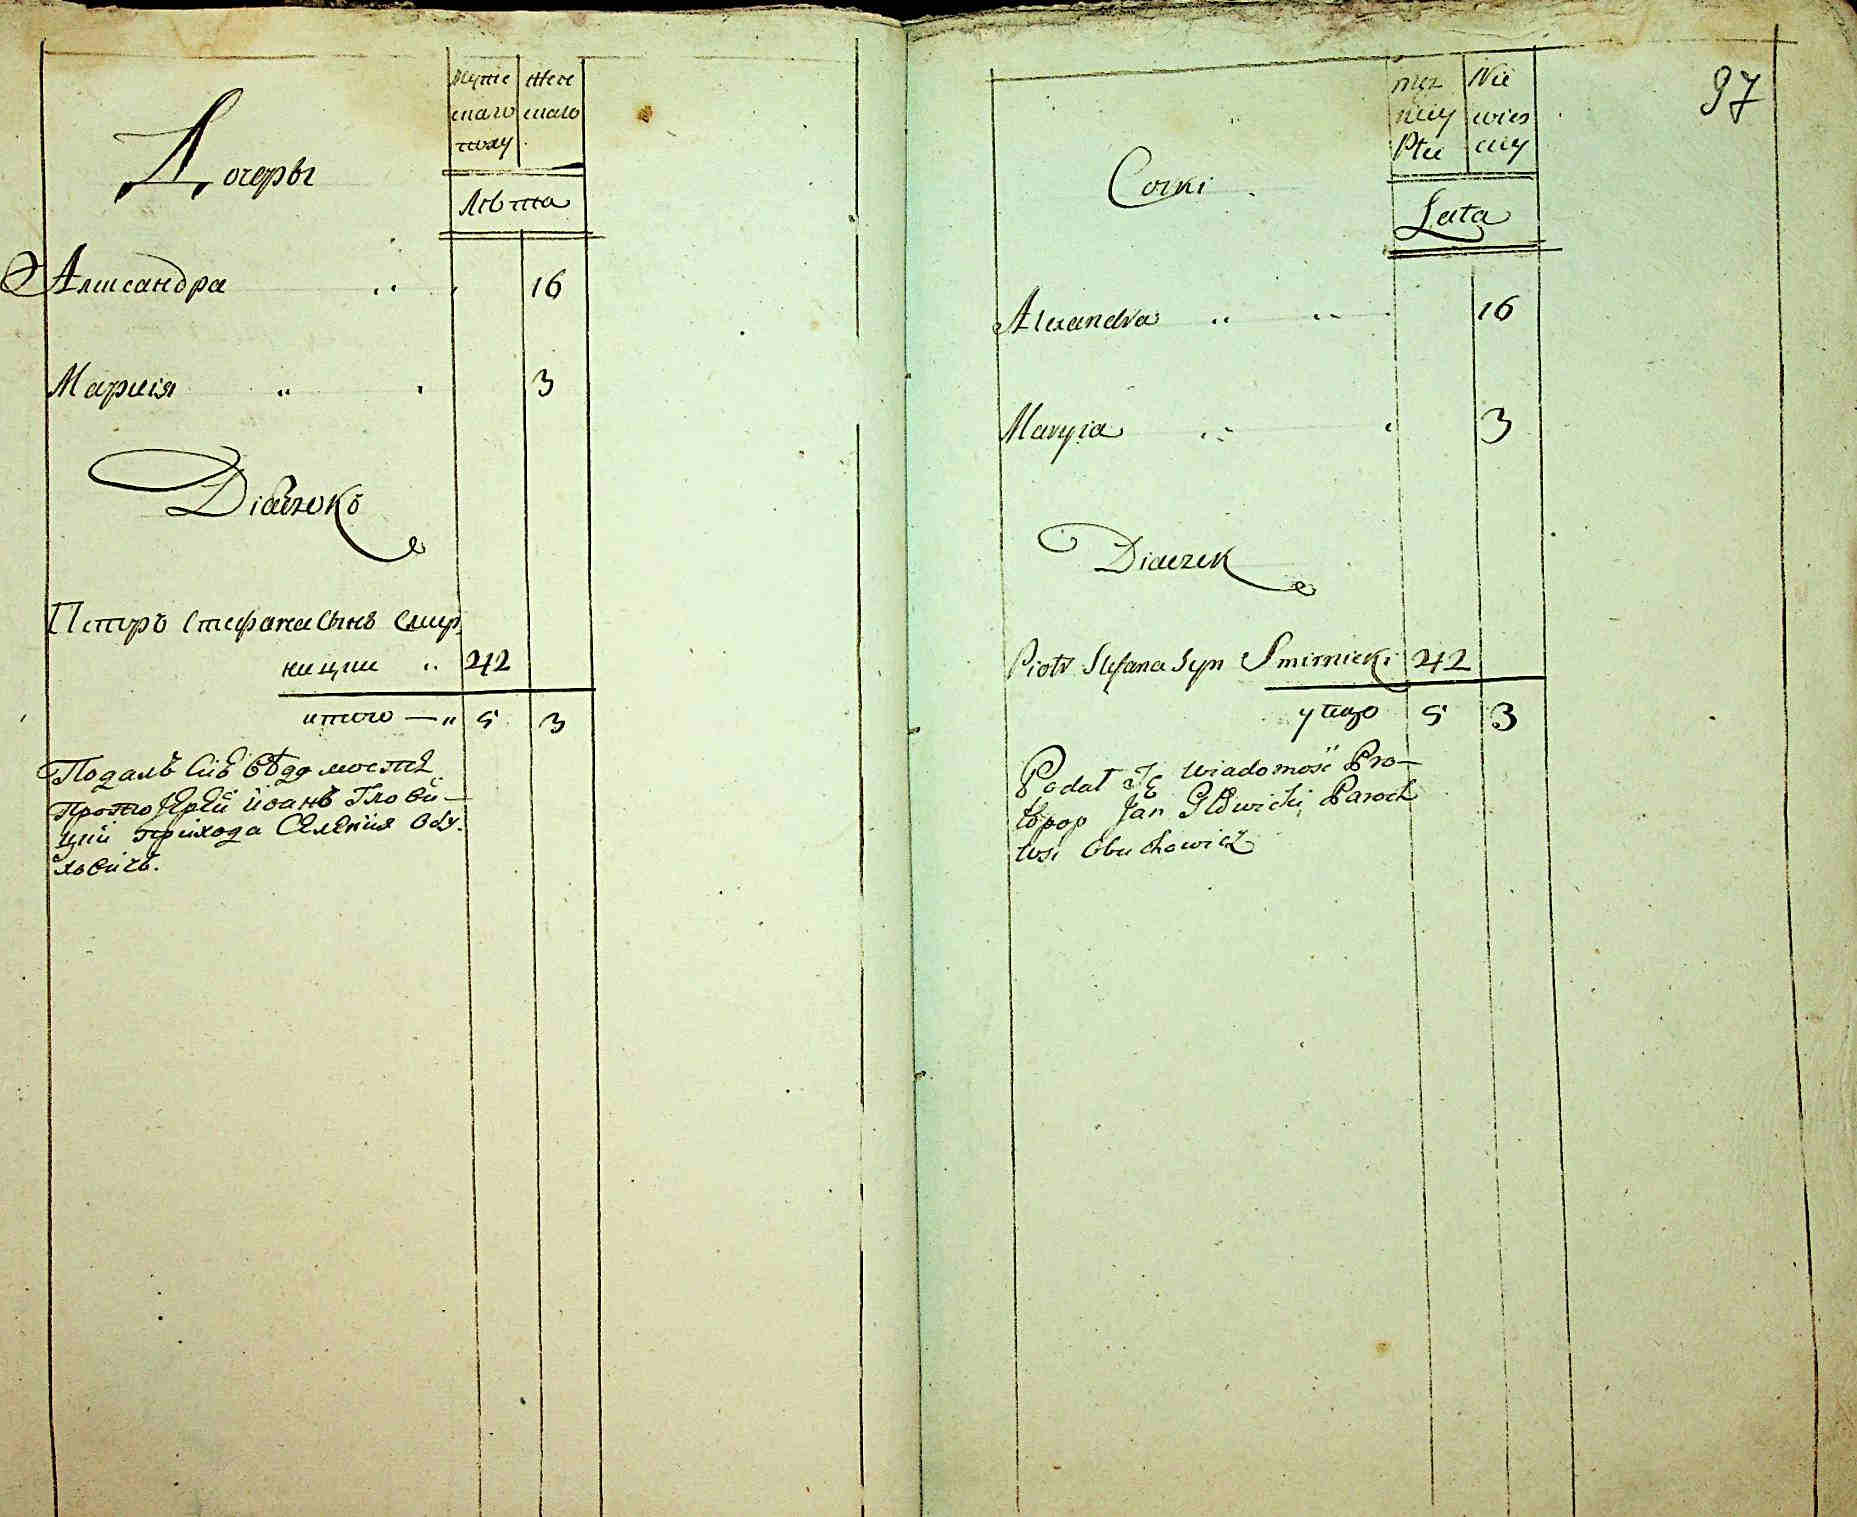 Дочеры
Муже
скаго
полу
Жен
скаго
Лѣта
Александра 16
Мариія 3
Діачокъ
Петръ Стефана Сынъ Смир
ницки 42
итого — 5 3
Подалъ Сиѣ Вѣдомостъ
Протоіерей Иоанъ Глови-
цкий прихода Селения Обу
ховичъ.
97
Corki
męz
kiey
Płci
Nie
wies
ciey
Lata
Alexandra 16
Maryia 3
Diaczek
Piotr Stefana Syn Smirnicki 42
ytego 5 3
Podał Tę Wiadomość Pro-
topop Jan Głowicki Paroch
wsi Obuchowicz